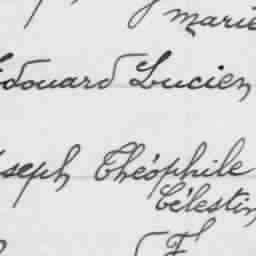 Marie
Édouard Lucien
Joseph Théophile
Célestin